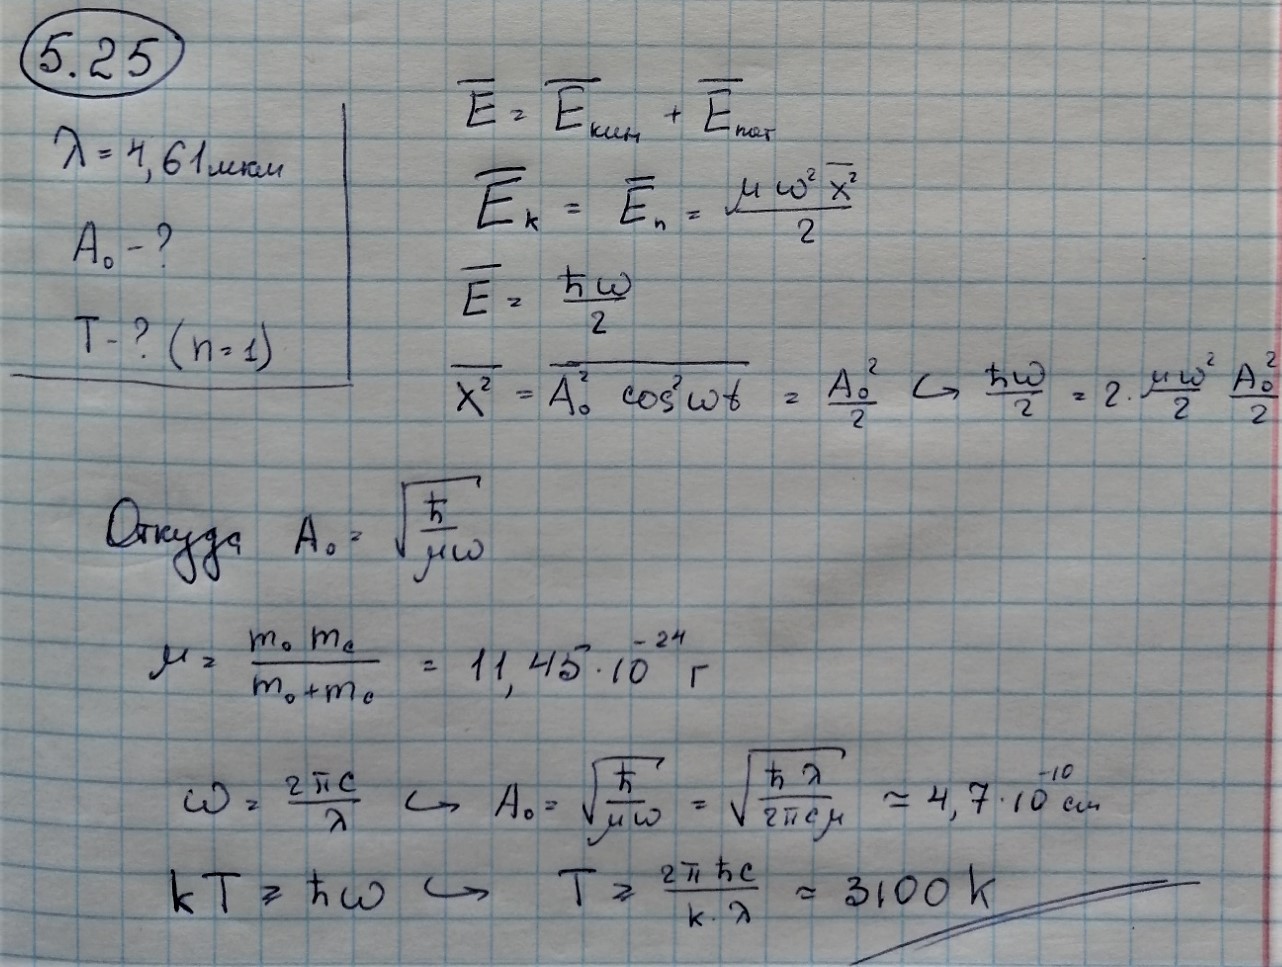 5.25
λ = 4,61 мкм
A₀ - ?
T - ? (n = 1)
E̅ = E̅кин + E̅пот
E̅k = E̅п = μω²x̅²/2
E̅ = ħω/2
x̅² = A₀² cos²ωt = A₀²/2 ↪ ħω/2 = 2 · μω²/2 A₀²/2
Откуда A₀ = √(ħ/μω)
μ = m₀ mc / m₀ + mc = 11,45 · 10⁻²⁴ г
ω = 2πc/λ ↪ A₀ = √(ħ/μω) = √(ħλ/2πcμ) ≃ 4,7 · 10⁻¹⁰ см
kT ⩾ ħω ↪ T ⩾ 2πħc/k·λ ≈ 3100 K